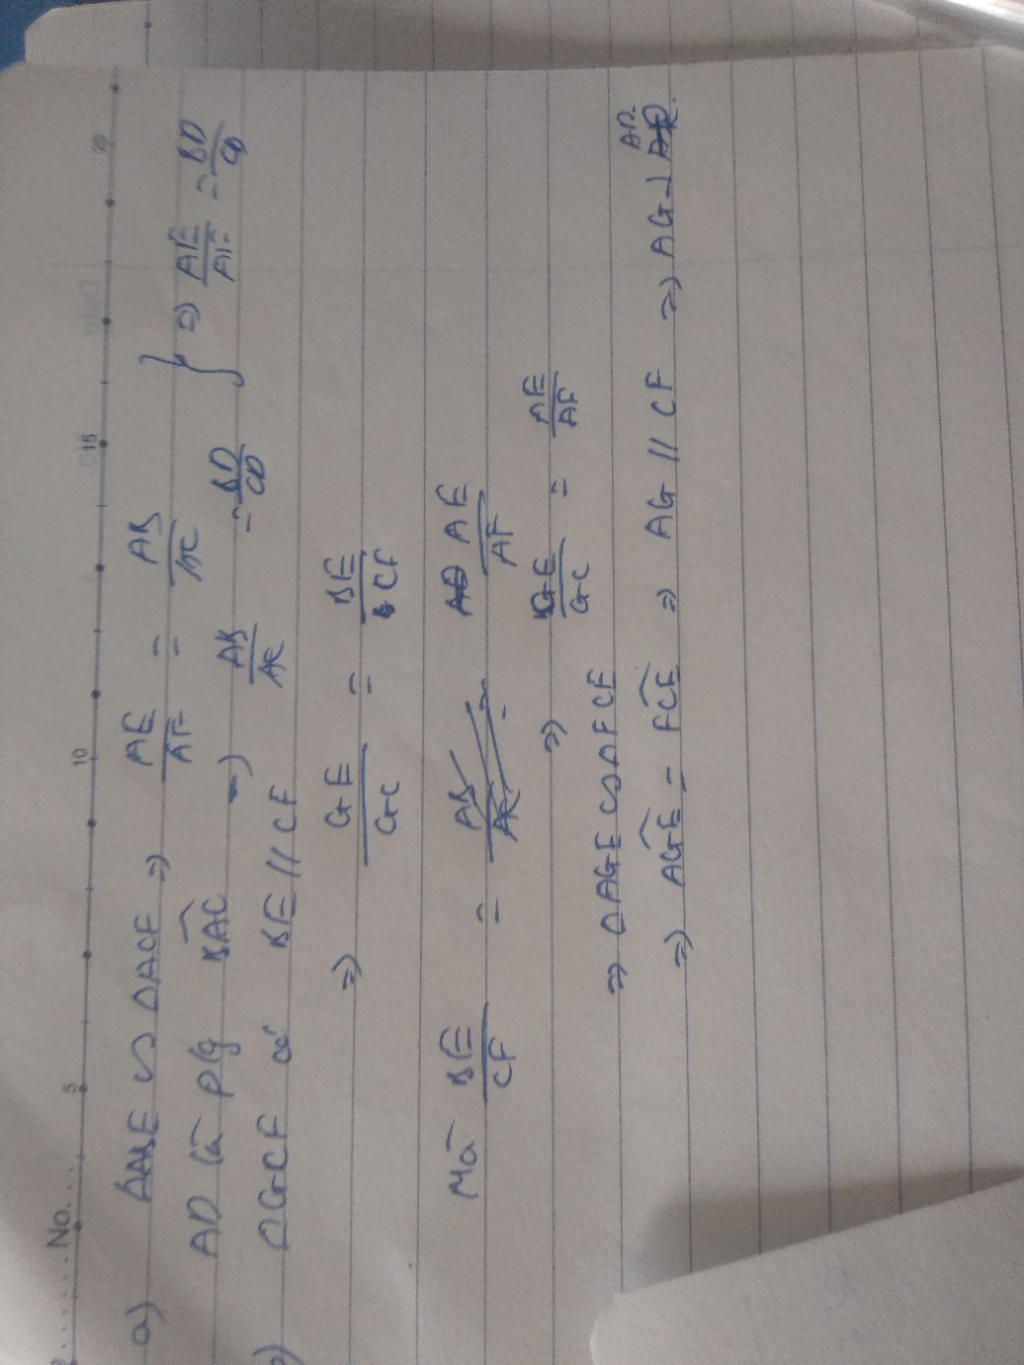 No.
5 10 15 20
a) ΔABE ∽ ΔACF ⇒ AE/AF = AB/AC
AD là p/g BAC ⇒ AB/AC = BD/CD } ⇒ AE/AF = BD/CD
ΔGCF có BE // CF
⇒ GE/GC = BE/CF
Mà BE/CF = AE/AF
⇒ GE/GC = AE/AF
⇒ ΔAGE ∽ ΔFCE
⇒ AGE = FCE ⇒ AG // CF ⇒ AG ⊥ AD.